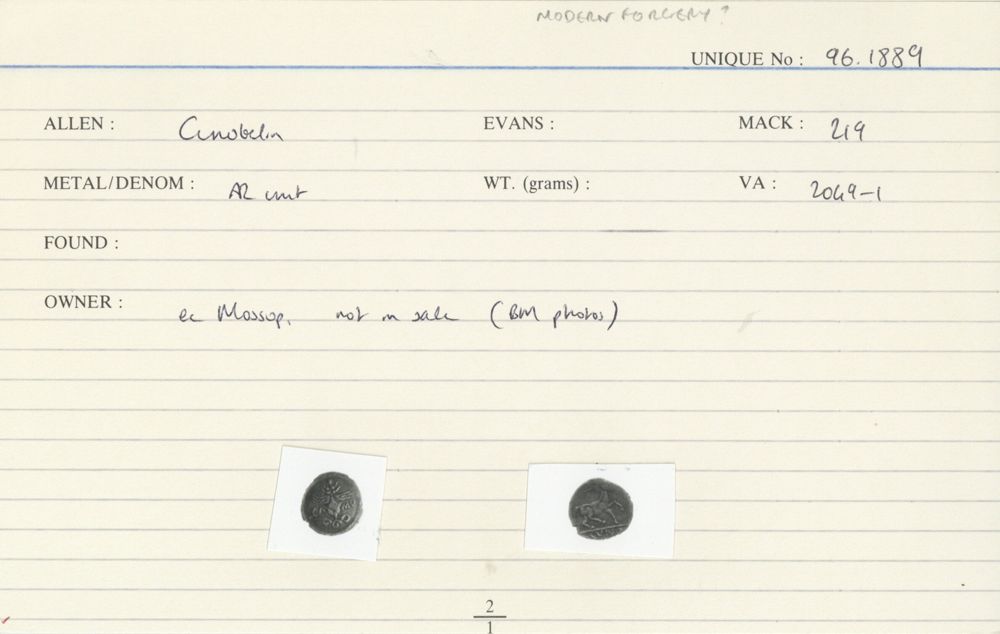 MODERN FORGERY?
UNIQUE No : 96.1889
ALLEN : Cunobelin EVANS : MACK : 219
METAL/DENOM : AR unit WT. (grams) : VA : 2049-1
FOUND :
OWNER : ex Mossop, not in sale (BM photos)
2
1